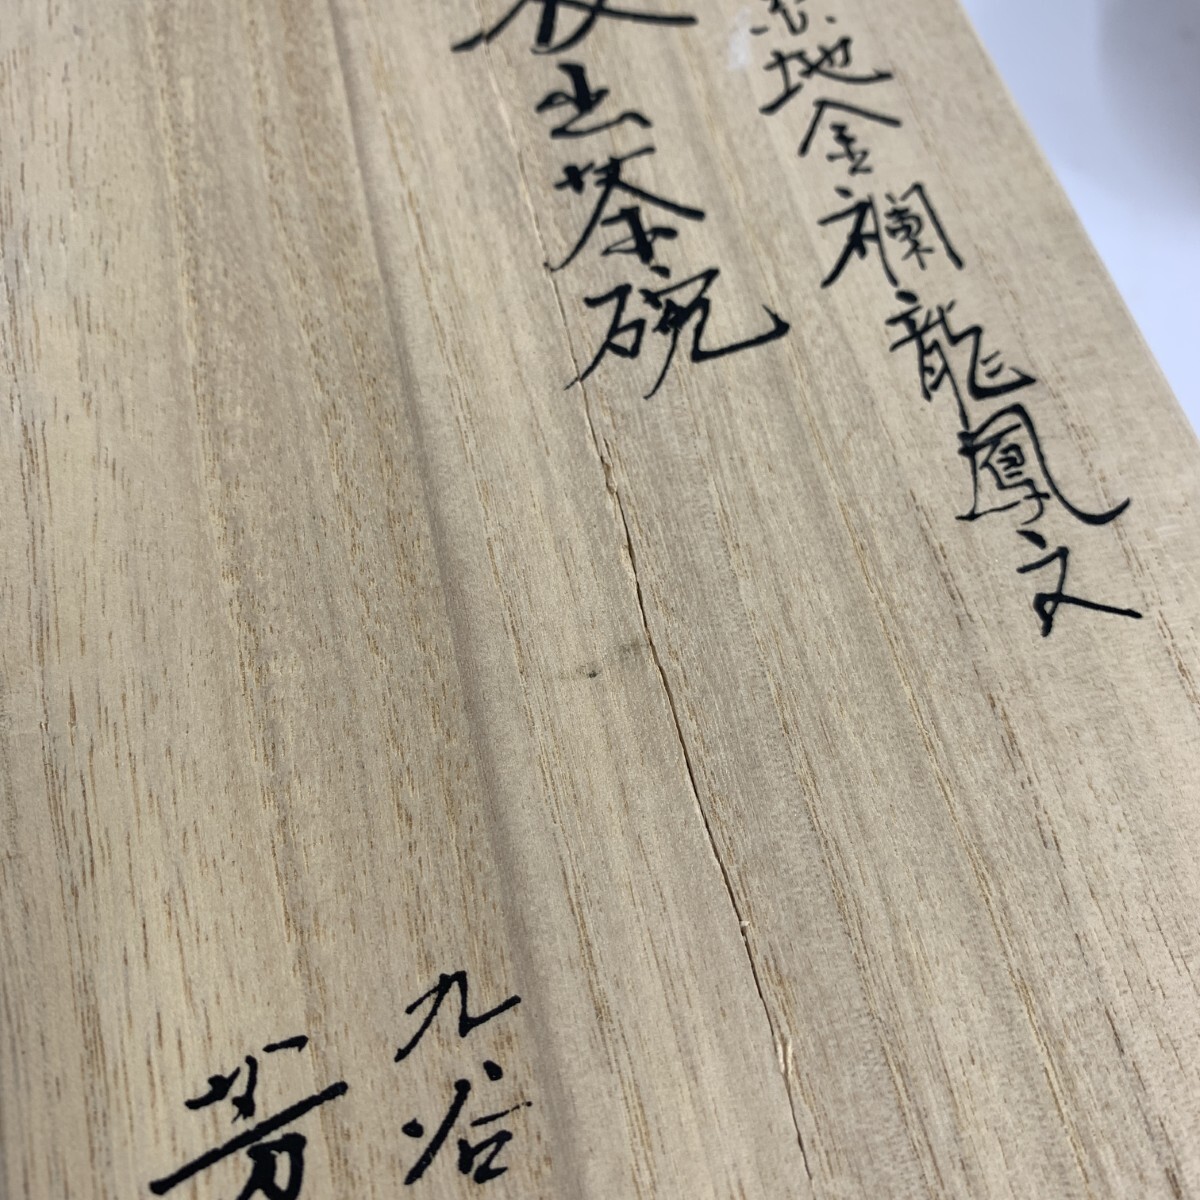 地金襴龍鳳文
出茶碗
九谷
芳